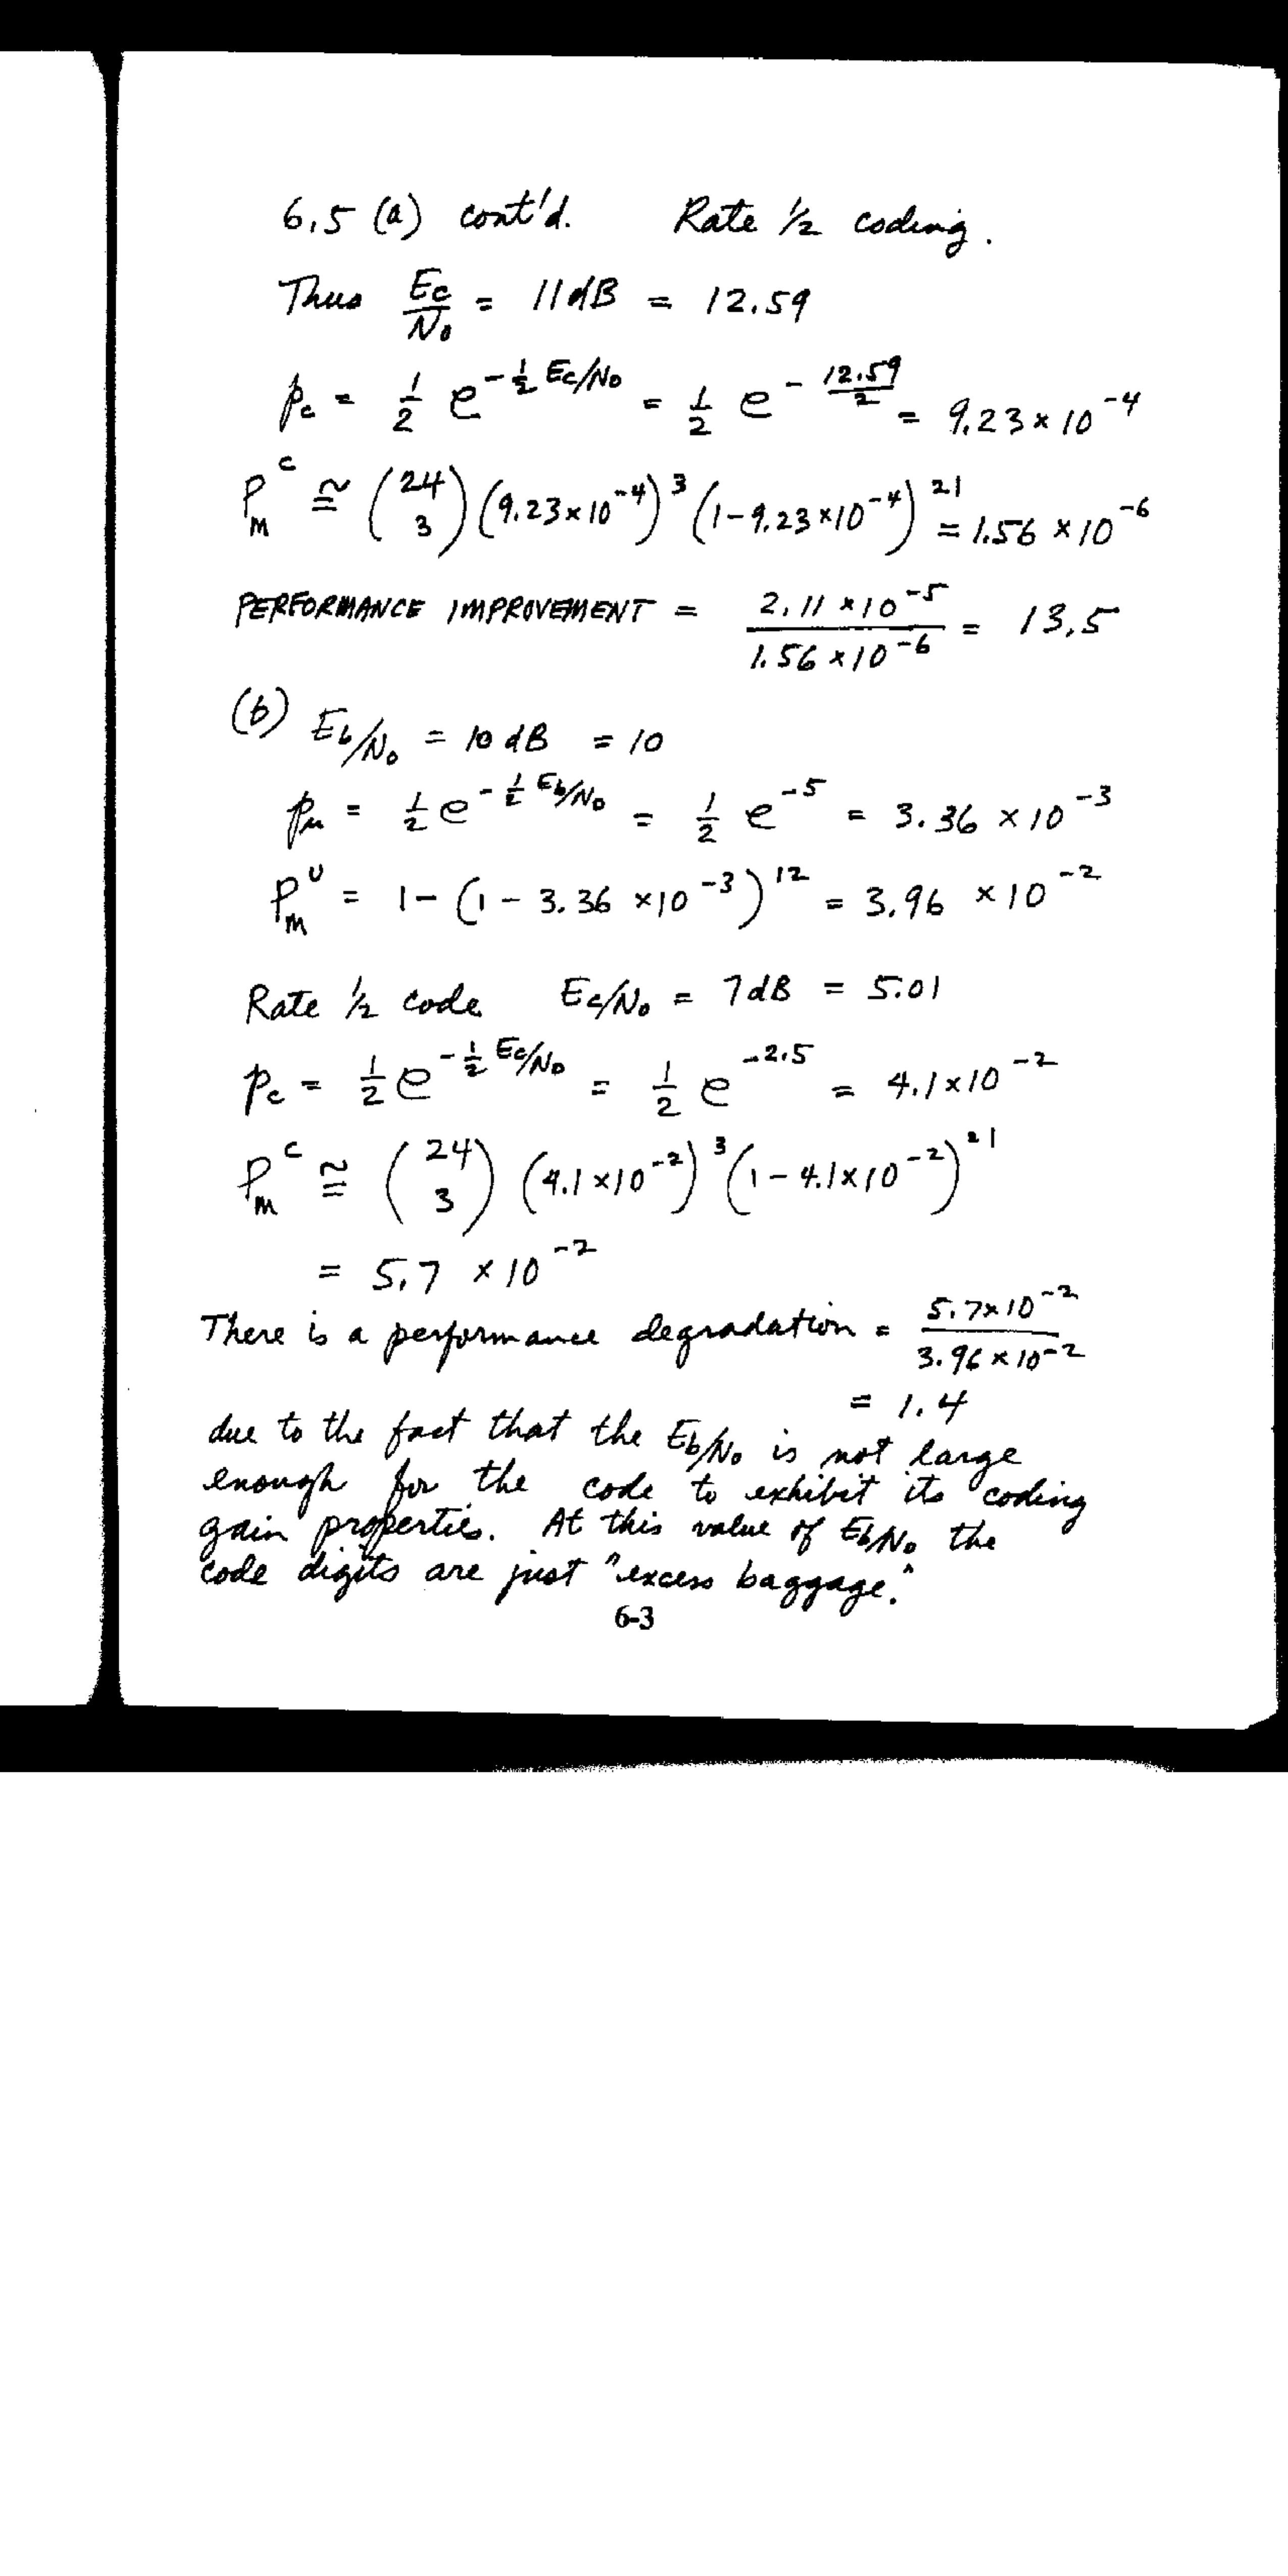 6.5 (a) cont'd. Rate 1/2 coding.
Thus Ec/N0 = 11 dB = 12.59
pc = 1/2 e^(-1/2 Ec/N0) = 1/2 e^(-12.59/2) = 9.23 × 10^-4
P_M^C ≅ (24 3) (9.23×10^-4)^3 (1-9.23×10^-4)^21 = 1.56 × 10^-6
PERFORMANCE IMPROVEMENT = 2.11 × 10^-5 / 1.56 × 10^-6 = 13.5
(b) Eb/N0 = 10 dB = 10
pu = 1/2 e^(-1/2 Eb/N0) = 1/2 e^-5 = 3.36 × 10^-3
P_M^U = 1 - (1 - 3.36 × 10^-3)^12 = 3.96 × 10^-2
Rate 1/2 code Ec/N0 = 7 dB = 5.01
pc = 1/2 e^(-1/2 Ec/N0) = 1/2 e^-2.5 = 4.1 × 10^-2
P_M^C ≅ (24 3) (4.1 × 10^-2)^3 (1 - 4.1 × 10^-2)^21
= 5.7 × 10^-2
There is a performance degradation = 5.7 × 10^-2 / 3.96 × 10^-2
= 1.4
due to the fact that the Eb/N0 is not large
enough for the code to exhibit its coding
gain properties. At this value of Eb/N0 the
code digits are just "excess baggage."
6-3